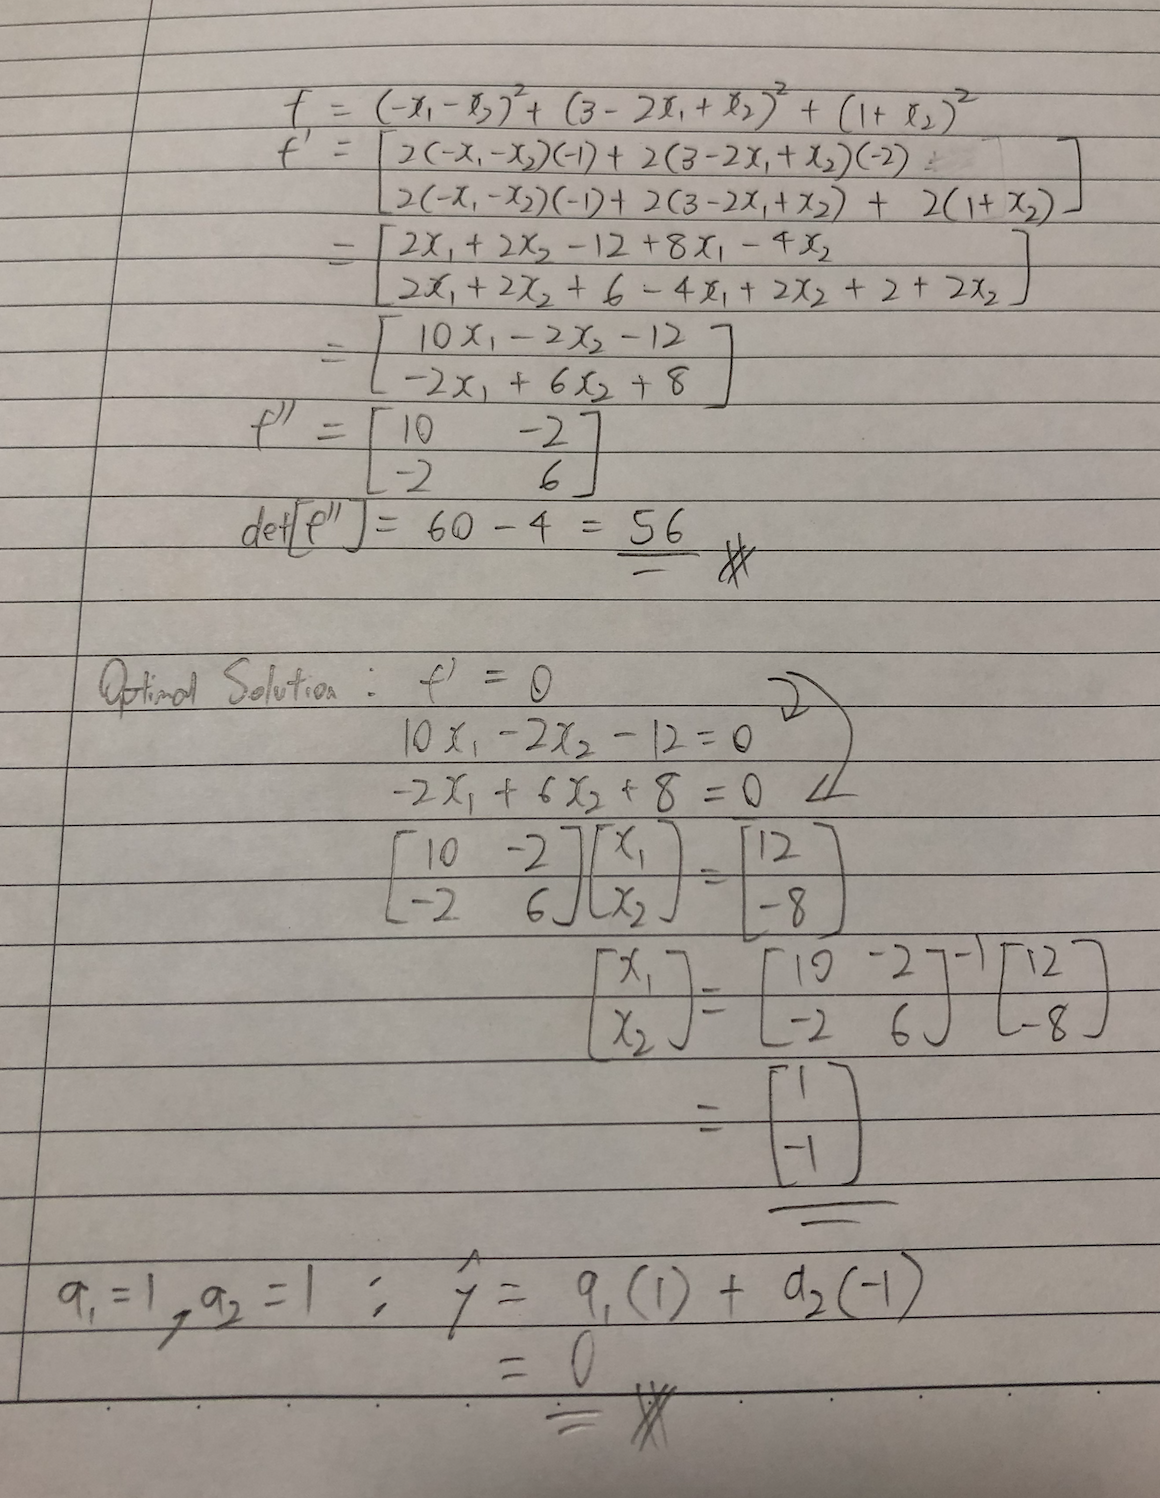 f = (-x₁ - x₂)² + (3 - 2x₁ + x₂)² + (1 + x₂)²
f' = [ 2(-x₁ - x₂)(-1) + 2(3 - 2x₁ + x₂)(-2)
2(-x₁ - x₂)(-1) + 2(3 - 2x₁ + x₂) + 2(1 + x₂) ]
= [ 2x₁ + 2x₂ - 12 + 8x₁ - 4x₂
2x₁ + 2x₂ + 6 - 4x₁ + 2x₂ + 2 + 2x₂ ]
= [ 10x₁ - 2x₂ - 12
-2x₁ + 6x₂ + 8 ]
f'' = [ 10 -2
-2 6 ]
det[f''] = 60 - 4 = 56
Optimal Solution : f' = 0
10x₁ - 2x₂ - 12 = 0
-2x₁ + 6x₂ + 8 = 0
[ 10 -2 [ x₁ = [ 12
-2 6 ] x₂ ] -8 ]
[ x₁ = [ 10 -2 ]⁻¹ [ 12
x₂ ] -2 6 -8 ]
= [ 1
-1 ]
a₁ = 1, a₂ = 1 ; ŷ = a₁(1) + a₂(-1)
= 0